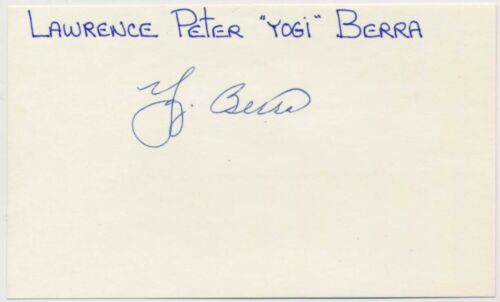 LAWRENCE PETER "YOGI" BERRA
Y. Berra